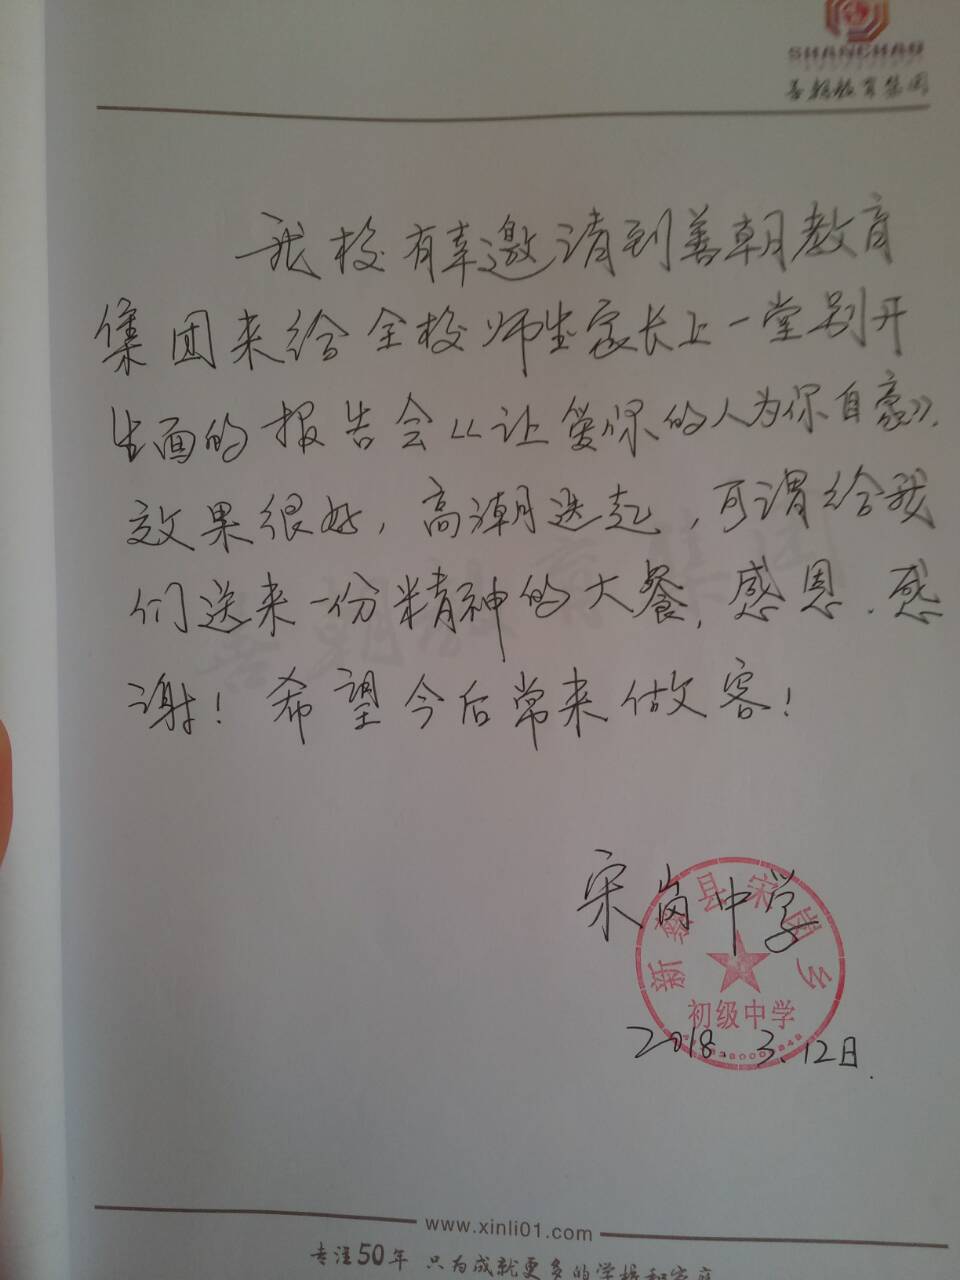 SHANCHAO
善朝教育集团
我校有幸邀请到善朝教育
集团来给全校师生家长上一堂别开
生面的报告会《让爱你的人为你自豪》.
效果很好,高潮迭起,可谓给我
们送来一份精神的大餐,感恩.感
谢!希望今后常来做客!
宋岗中学
新蔡县宋岗乡
初级中学
2018.3.12日.
www.xinli01.com
专注50年 只为成就更多的学校和家庭